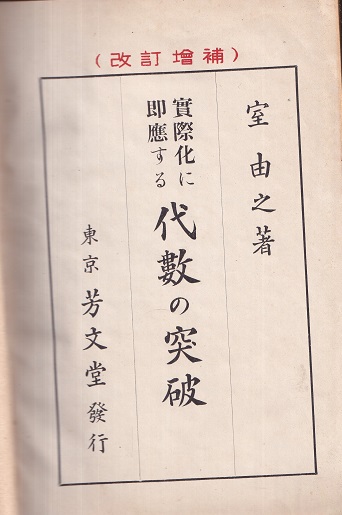 (補增訂改)
室由之著
實際化に
即應する
代數の突破
東京 芳文堂 發行